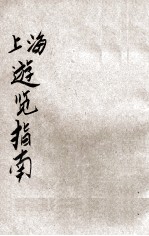 上海
遊览指南